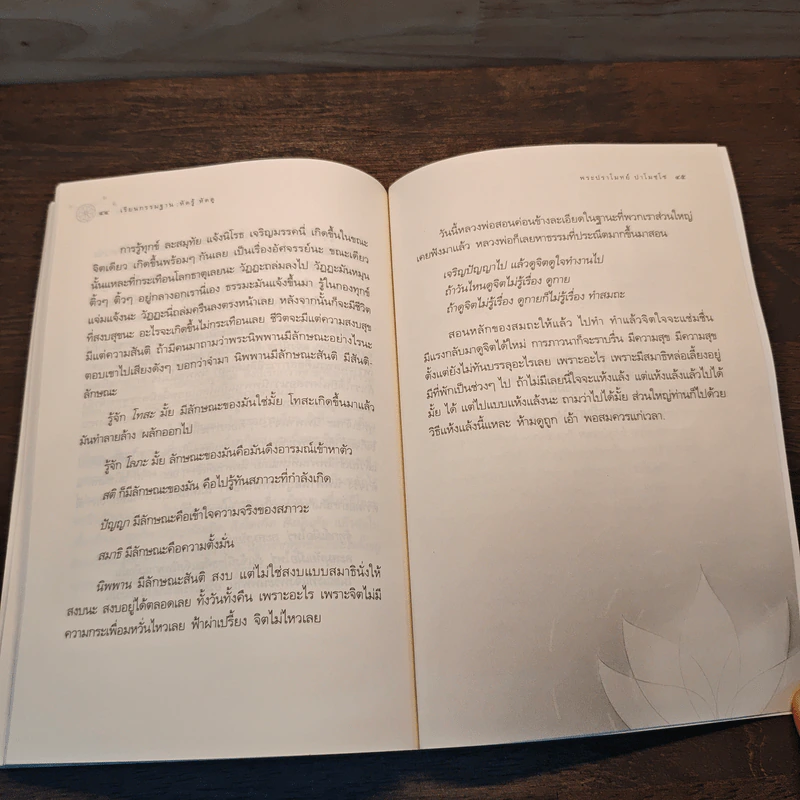 ๔๔ เรียนกรรมฐาน หัดรู้ หัดดู
การรู้ทุกข์ ละสมุทัย แจ้งนิโรธ เจริญมรรคนี่ เกิดขึ้นในขณะ
จิตเดียว เกิดขึ้นพร้อมๆ กันเลย เป็นเรื่องอัศจรรย์นะ ขณะเดียว
นั้นแหละที่กระเทือนโลกธาตุเลยนะ วัฏฏะถล่มลงไป วัฏฏะมันหมุน
ติ้วๆ ติ้วๆ อยู่กลางอกเรานี่เอง ธรรมะมันแจ้งขึ้นมา รู้ในกองทุกข์
แจ่มแจ้งนะ วัฏฏะนี่ถล่มครืนลงตรงหน้าเลย หลังจากนั้นก็จะมีชีวิต
ที่สงบสุขนะ อะไรจะเกิดขึ้นไม่กระเทือนเลย ชีวิตจะมีแต่ความสงบสุข
มีแต่ความสันติ ถ้ามีคนมาถามว่าพระนิพพานมีลักษณะอย่างไรนะ
ตอบเขาไปเสียงดังๆ บอกว่าจำมา นิพพานมีลักษณะสันติ มีสันติ-
ลักษณะ
รู้จัก โทสะ มั้ย มีลักษณะของมันใช่มั้ย โทสะเกิดขึ้นมาแล้ว
มันทำลายล้าง ผลักออกไป
รู้จัก โลภะ มั้ย ลักษณะของมันคือมันดึงอารมณ์เข้าหาตัว
สติ ก็มีลักษณะของมัน คือไปรู้ทันสภาวะที่กำลังเกิด
ปัญญา มีลักษณะคือเข้าใจความจริงของสภาวะ
สมาธิ มีลักษณะคือความตั้งมั่น
นิพพาน มีลักษณะสันติ สงบ แต่ไม่ใช่สงบแบบสมาธินั่งให้
สงบนะ สงบอยู่ได้ตลอดเลย ทั้งวันทั้งคืน เพราะอะไร เพราะจิตไม่มี
ความกระเพื่อมหวั่นไหวเลย ฟ้าผ่าเปรี้ยง จิตไม่ไหวเลย
พระปราโมทย์ ปาโมชฺโช ๔๕
วันนี้หลวงพ่อสอนค่อนข้างละเอียดในฐานะที่พวกเราส่วนใหญ่
เคยฟังมาแล้ว หลวงพ่อก็เลยหาธรรมที่ประณีตมากขึ้นมาสอน
เจริญปัญญาไป แล้วดูจิตดูใจทำงานไป
ถ้าวันไหนดูจิตไม่รู้เรื่อง ดูกาย
ถ้าดูจิตไม่รู้เรื่อง ดูกายก็ไม่รู้เรื่อง ทำสมถะ
สอนหลักของสมถะให้แล้ว ไปทำ ทำแล้วจิตใจจะแช่มชื่น
มีแรงกลับมาดูจิตได้ใหม่ การภาวนาก็จะราบรื่น มีความสุข มีความสุข
ตั้งแต่ยังไม่ทันบรรลุอะไรเลย เพราะอะไร เพราะมีสมาธิหล่อเลี้ยงอยู่
มีที่พักเป็นช่วงๆ ไป ถ้าไม่มีเลยนี่ใจจะแห้งแล้ง แต่แห้งแล้งแล้วไปได้
มั้ย ได้ แต่ไปแบบแห้งแล้งนะ ถามว่าไปได้มั้ย ส่วนใหญ่ท่านก็ไปด้วย
วิธีแห้งแล้งนี้แหละ ห้ามดูถูก เอ้า พอสมควรแก่เวลา.